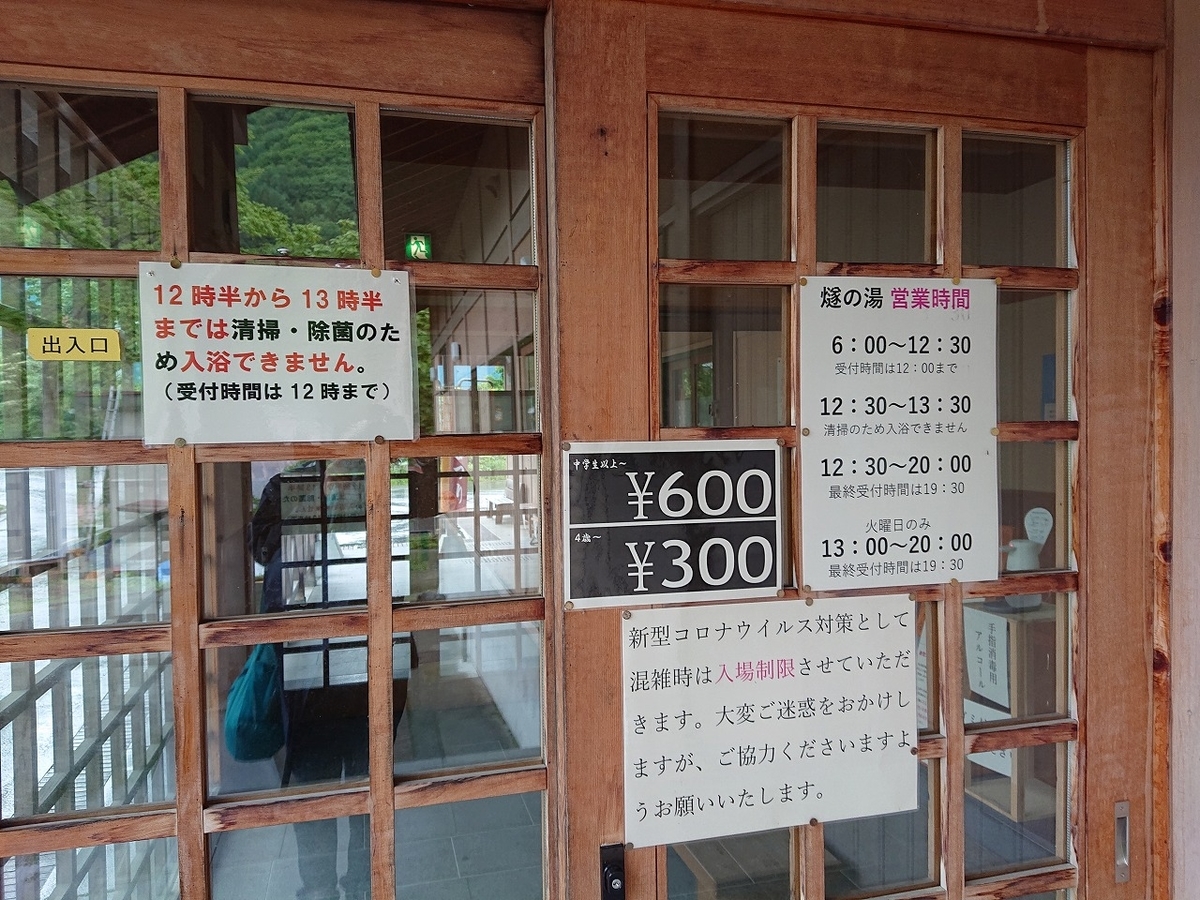 12時半から13時半
までは清掃・除菌のた
め入浴できません。
（受付時間は12時まで）
出入口
燧の湯 営業時間
6：00〜12：30
受付時間は12：00まで
12：30〜13：30
清掃のため入浴できません
12：30〜20：00
最終受付時間は19：30
火曜日のみ
13：00〜20：00
最終受付時間は19：30
中学生以上〜
¥600
4歳〜
¥300
新型コロナウイルス対策として
混雑時は入場制限させていただ
きます。大変ご迷惑をおかけし
ますが、ご協力くださいますよ
うお願いいたします。
手指消毒用
アルコール